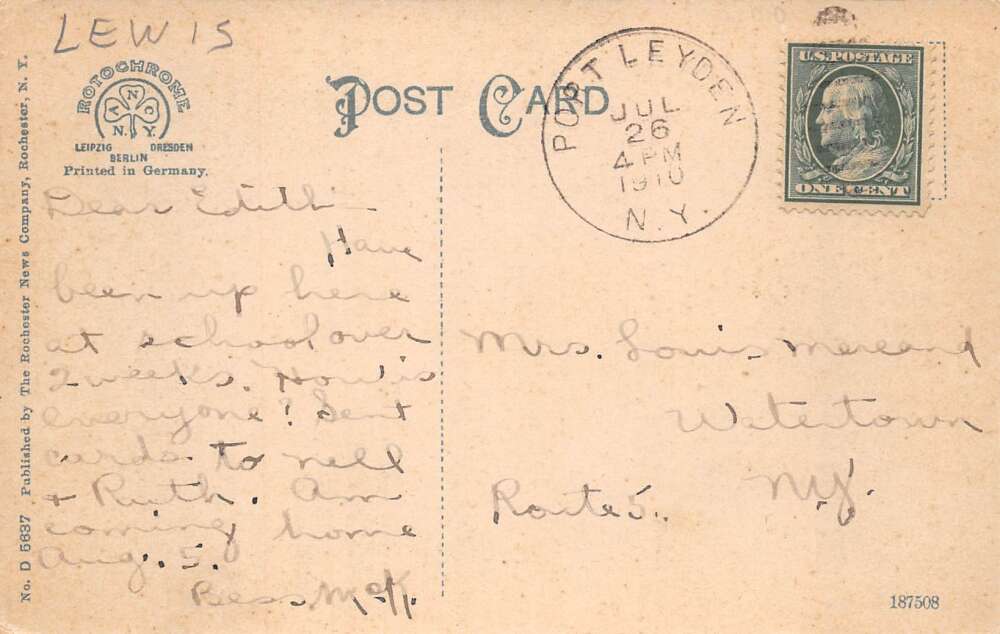 LEWIS
ROTOCHROME
A N C O
N. Y.
LEIPZIG DRESDEN
BERLIN
Printed in Germany.
POST CARD
PORT LEYDEN
JUL
26
4 PM
1910
N. Y.
U.S. POSTAGE
ONE CENT
No. D 5637 Published by The Rochester News Company, Rochester, N. Y.
Dear Edith
Have
been up here
at school over
2 weeks. How is
everyone? Sent
cards to nell
+ Ruth. Am
coming home
Aug. 5.
Bess McK.
Mrs. Louis
Watertown
Route 5. N.Y.
187508